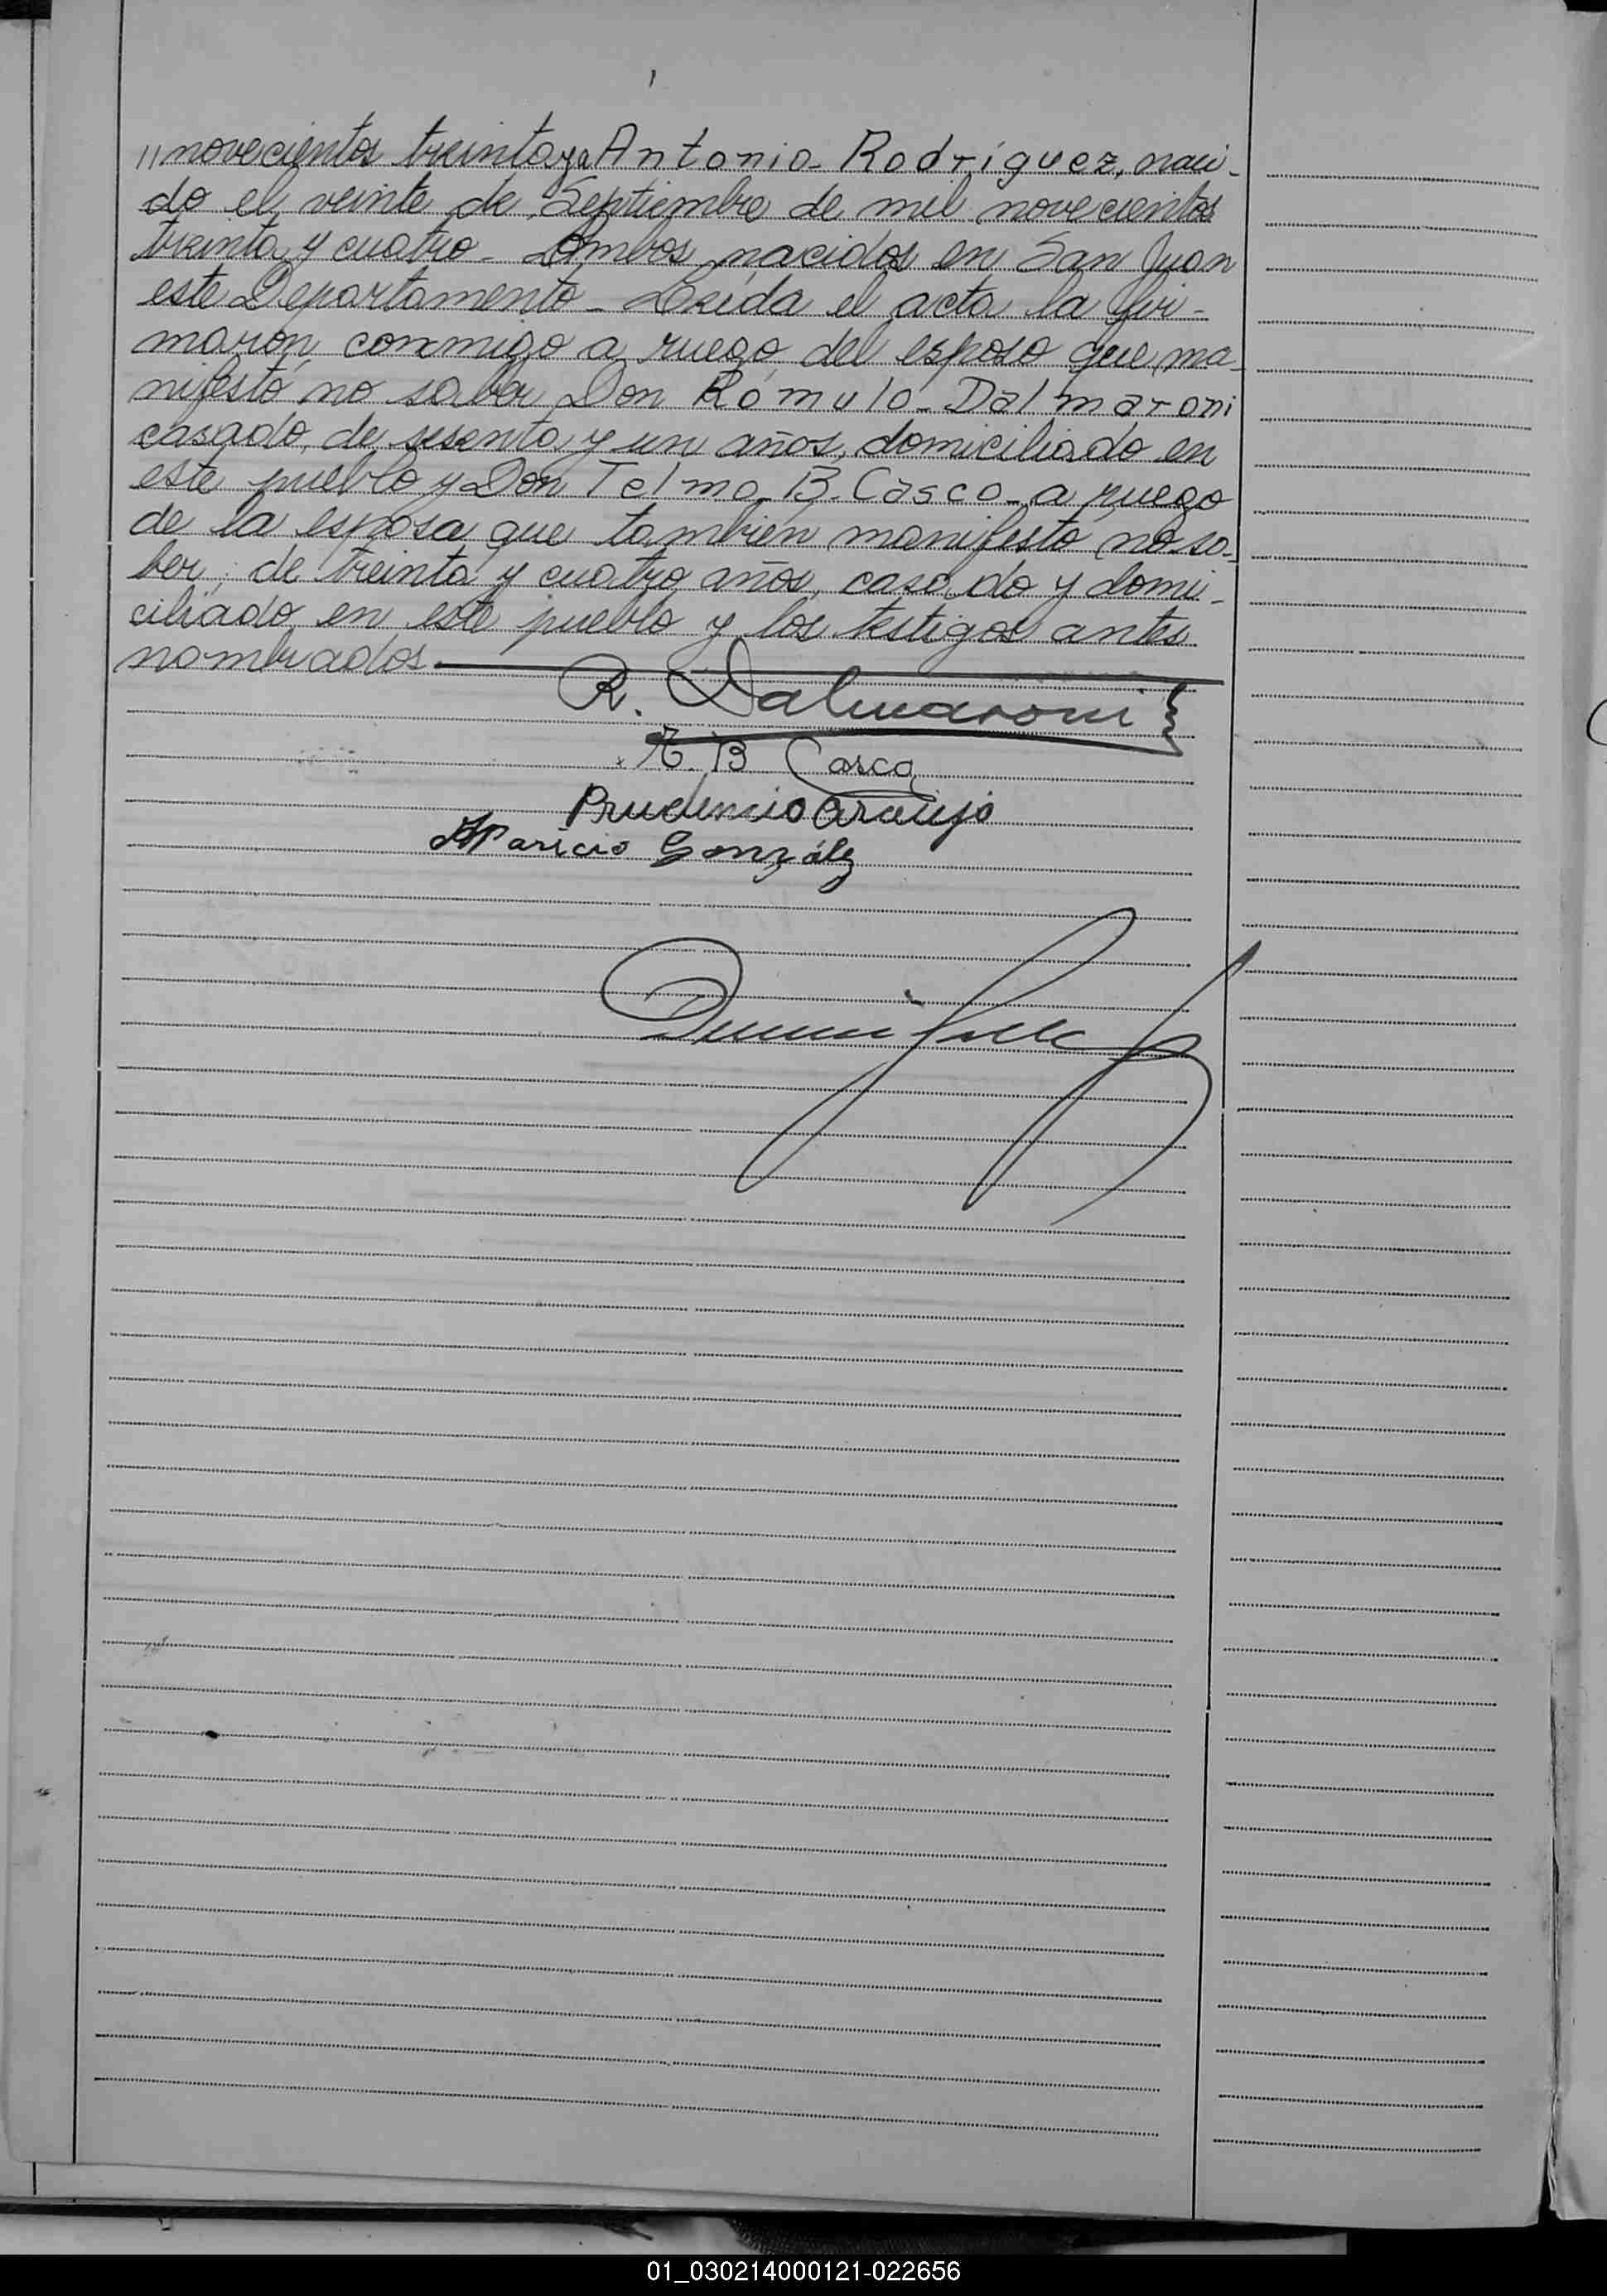 //novecientos treinta y a Antonio- Rodríguez, naci-
do el veinte de Septiembre de mil novecientos
treinta y cuatro- Ambos nacidos en San Juan
este Departamento- Leída el acta la fir-
maron conmigo a ruego del esposo que ma-
nifestó no saber Don Rómulo- Dalmaroni
casado, de sesenta y un años, domiciliado en
este pueblo y Don Telmo- B- Casco- a ruego
de la esposa que también manifestó no sa-
ber, de treinta y cuatro años, casado y domi-
ciliado en este pueblo y los testigos antes
nombrados
R. Dalmaroni
T. B Casco
Prudencio Araujo
Aparicio González
01_030214000121-022656